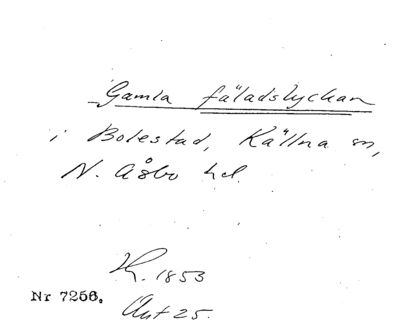 Gamla fäladslyckan
i Bolestad, Källna sn,
N. Åsbo hd.
1853
Nr 7256.
Akt 25.